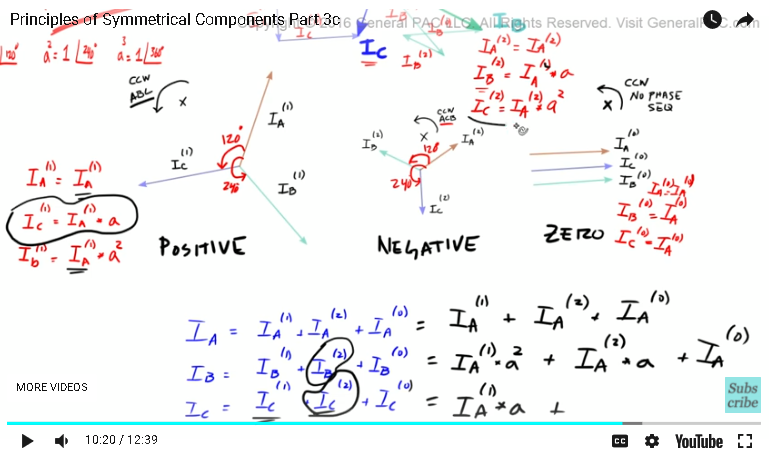 Principles of Symmetrical Components Part 3c
General PAC LLC. All Rights Reserved. Visit General
.com
I_C
I_C
I_B
I_B^(2)
I_A^(2) = I_A^(2)
I_B^(2) = I_A^(2) * a
I_C^(2) = I_A^(2) * a²
120°
a² = 1∠240°
a³ = 1∠360°
CCW
ABC
x
I_A^(1)
120°
240°
I_C^(1)
I_B^(1)
CCW
ACB
x
I_B^(2)
I_A^(2)
120°
240°
I_C^(2)
CCW
NO PHASE
SEQ
x
I_A^(0)
I_C^(0)
I_B^(0)
I_A^(1) = I_A^(1)
I_C^(1) = I_A^(1) * a
I_b^(1) = I_A^(1) * a²
I_B^(0) = I_A^(0)
I_C^(0) = I_A^(0)
POSITIVE
NEGATIVE
ZERO
I_A = I_A^(1) + I_A^(2) + I_A^(0) = I_A^(1) + I_A^(2) + I_A^(0)
I_B = I_B^(1) + I_B^(2) + I_B^(0) = I_A^(1) * a² + I_A^(2) * a + I_A^(0)
I_C = I_C^(1) + I_C^(2) + I_C^(0) = I_A^(1) * a +
MORE VIDEOS
Subs
cribe
10:20 / 12:39
CC
YouTube